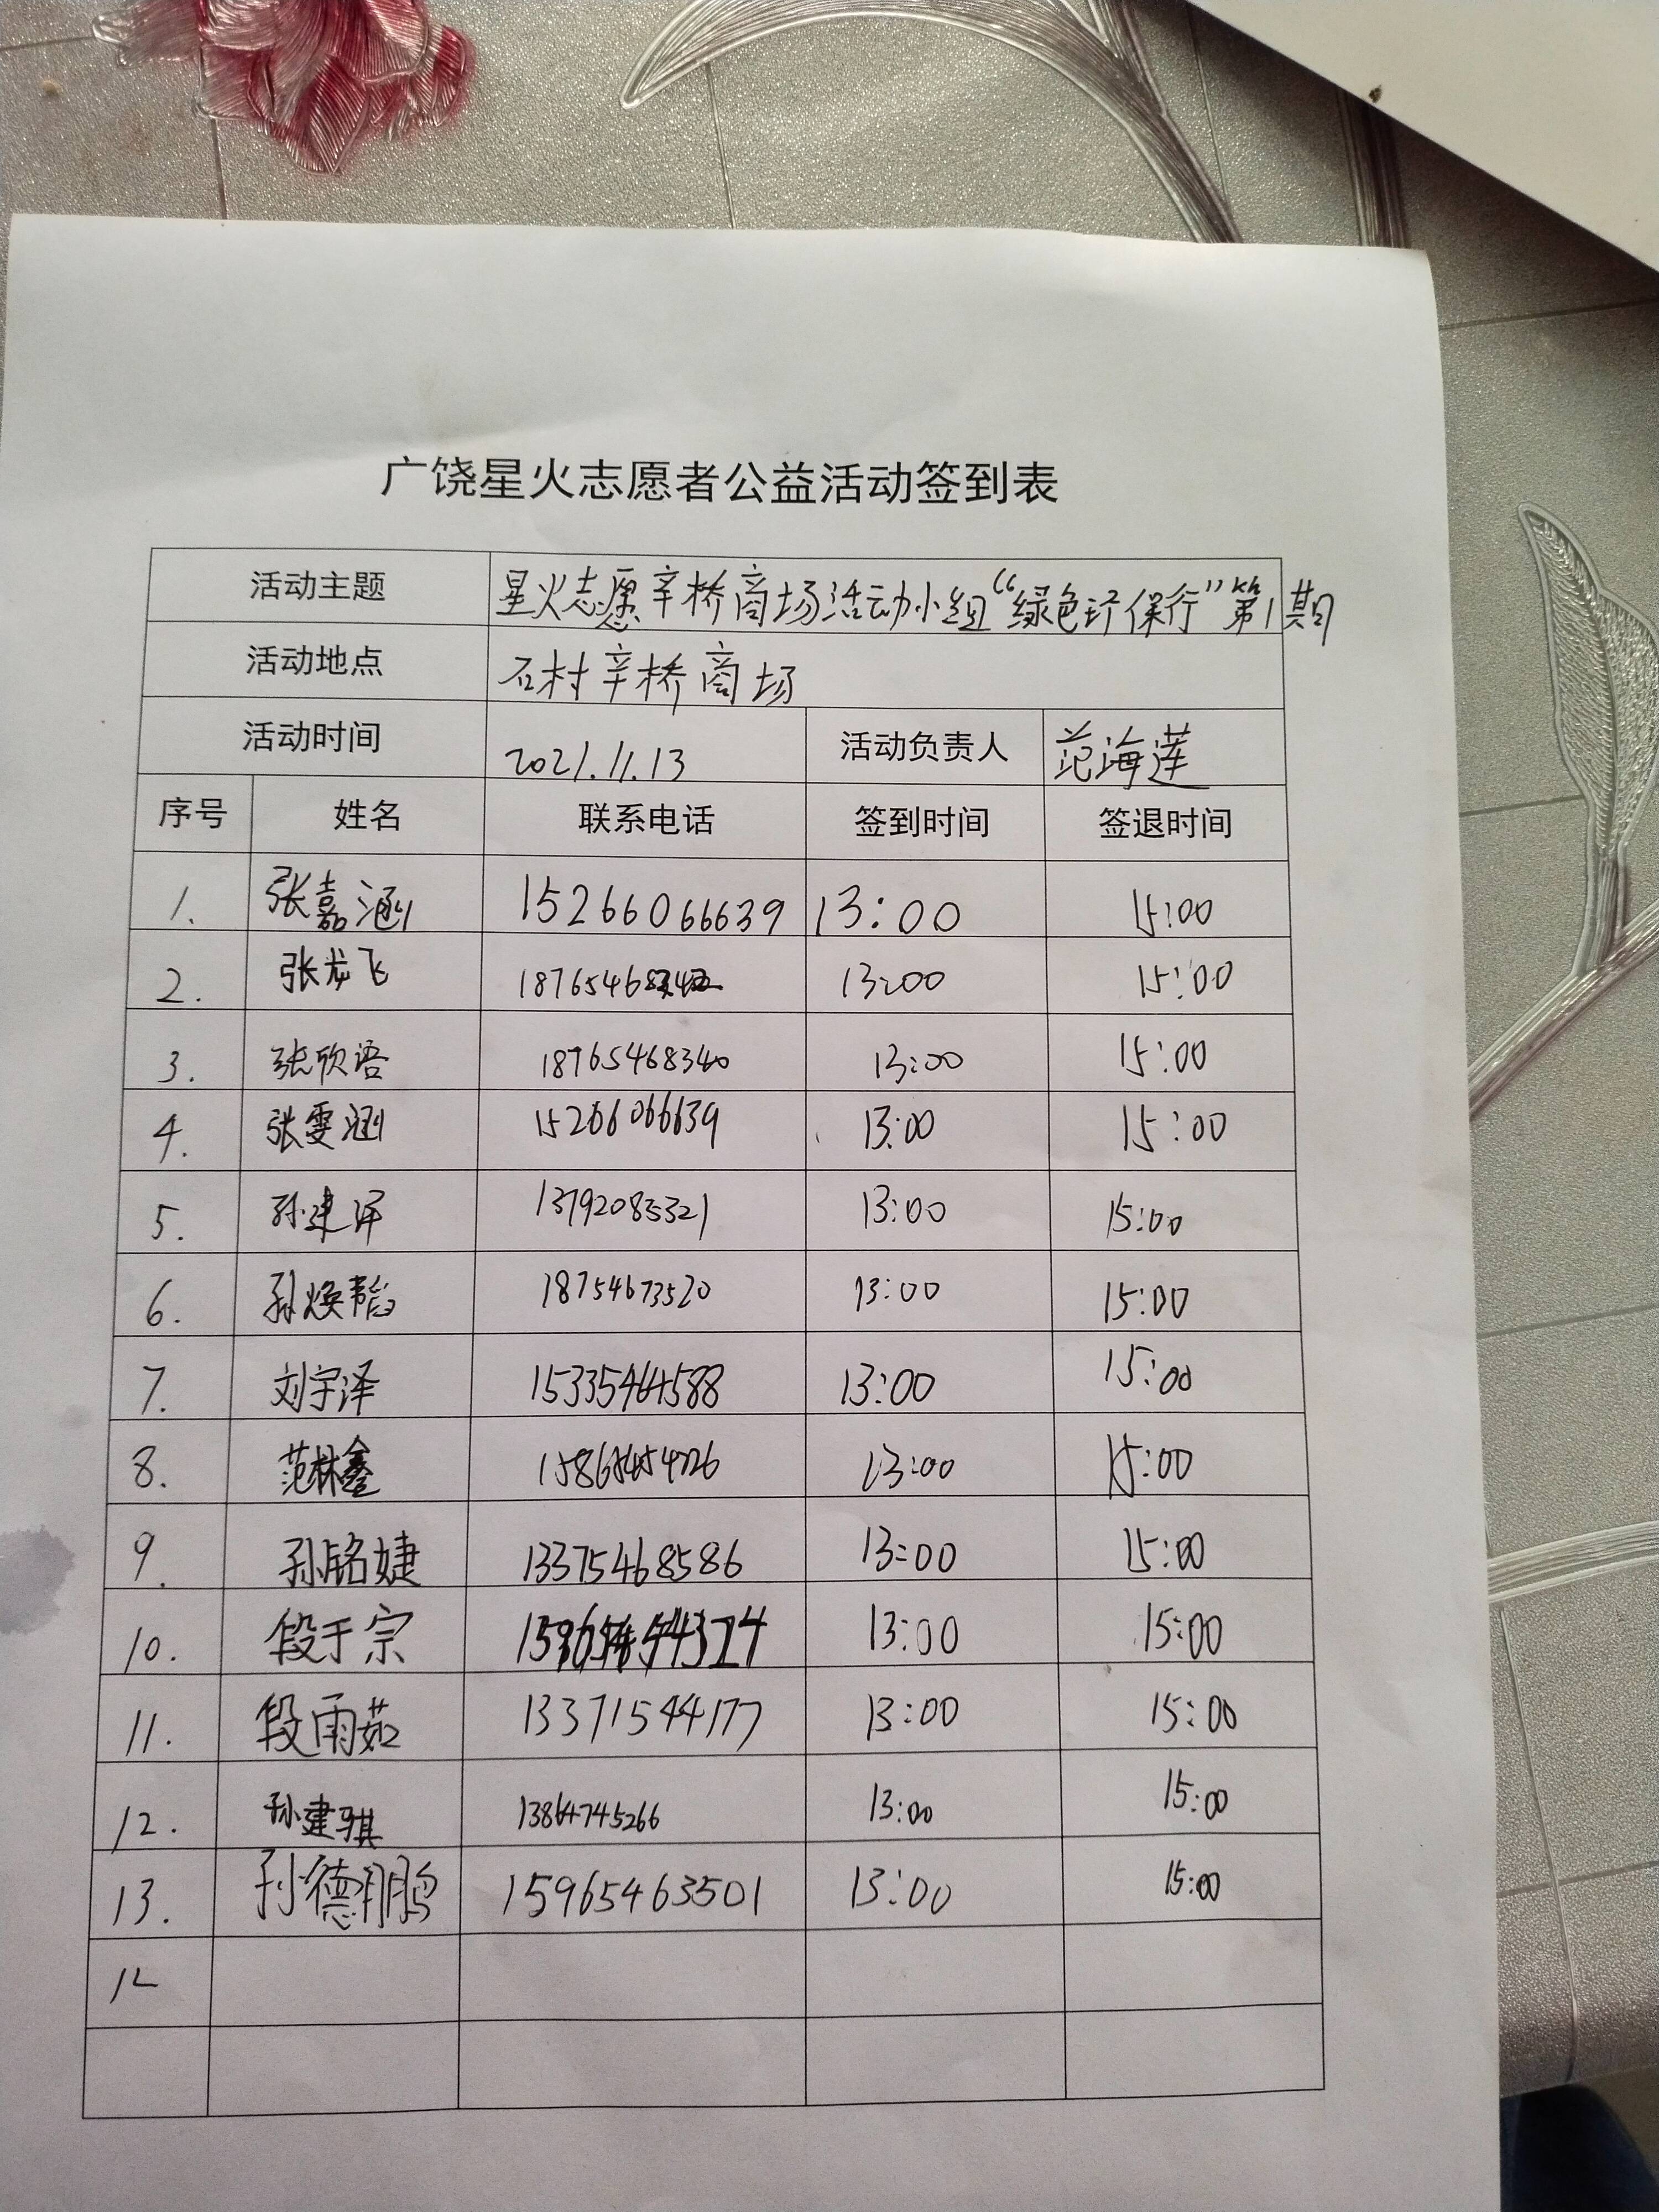 广饶星火志愿者公益活动签到表
活动主题 星火志愿辛桥商场活动小组“绿色环保行”第1期
活动地点 石村辛桥商场
活动时间 2021.11.13 活动负责人 范海莲
序号 姓名 联系电话 签到时间 签退时间
1. 张嘉涵 15266066639 13:00 15:00
2. 张龙飞 13:00 15:00
3. 张欣语 18765468340 13:00 15:00
4. 张雯涵 15266066639 13:00 15:00
5. 孙建泽 13792085321 13:00 15:00
6. 孙焕韬 18754673520 13:00 15:00
7. 刘宇泽 15335464588 13:00 15:00
8. 范林鑫 13:00 15:00
9. 孙铭婕 13375468586 13:00 15:00
10. 段于宗 13:00 15:00
11. 段雨茹 13371544177 13:00 15:00
12. 孙建骐 13864745266 13:00 15:00
13. 孙德鹏 15965463501 13:00 15:00